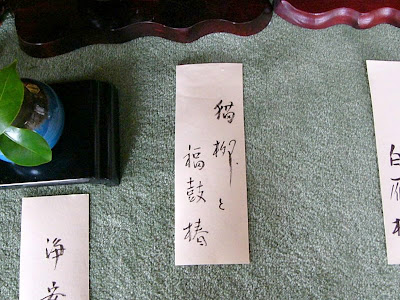 白雁
猫柳と
福鼓椿
浄安